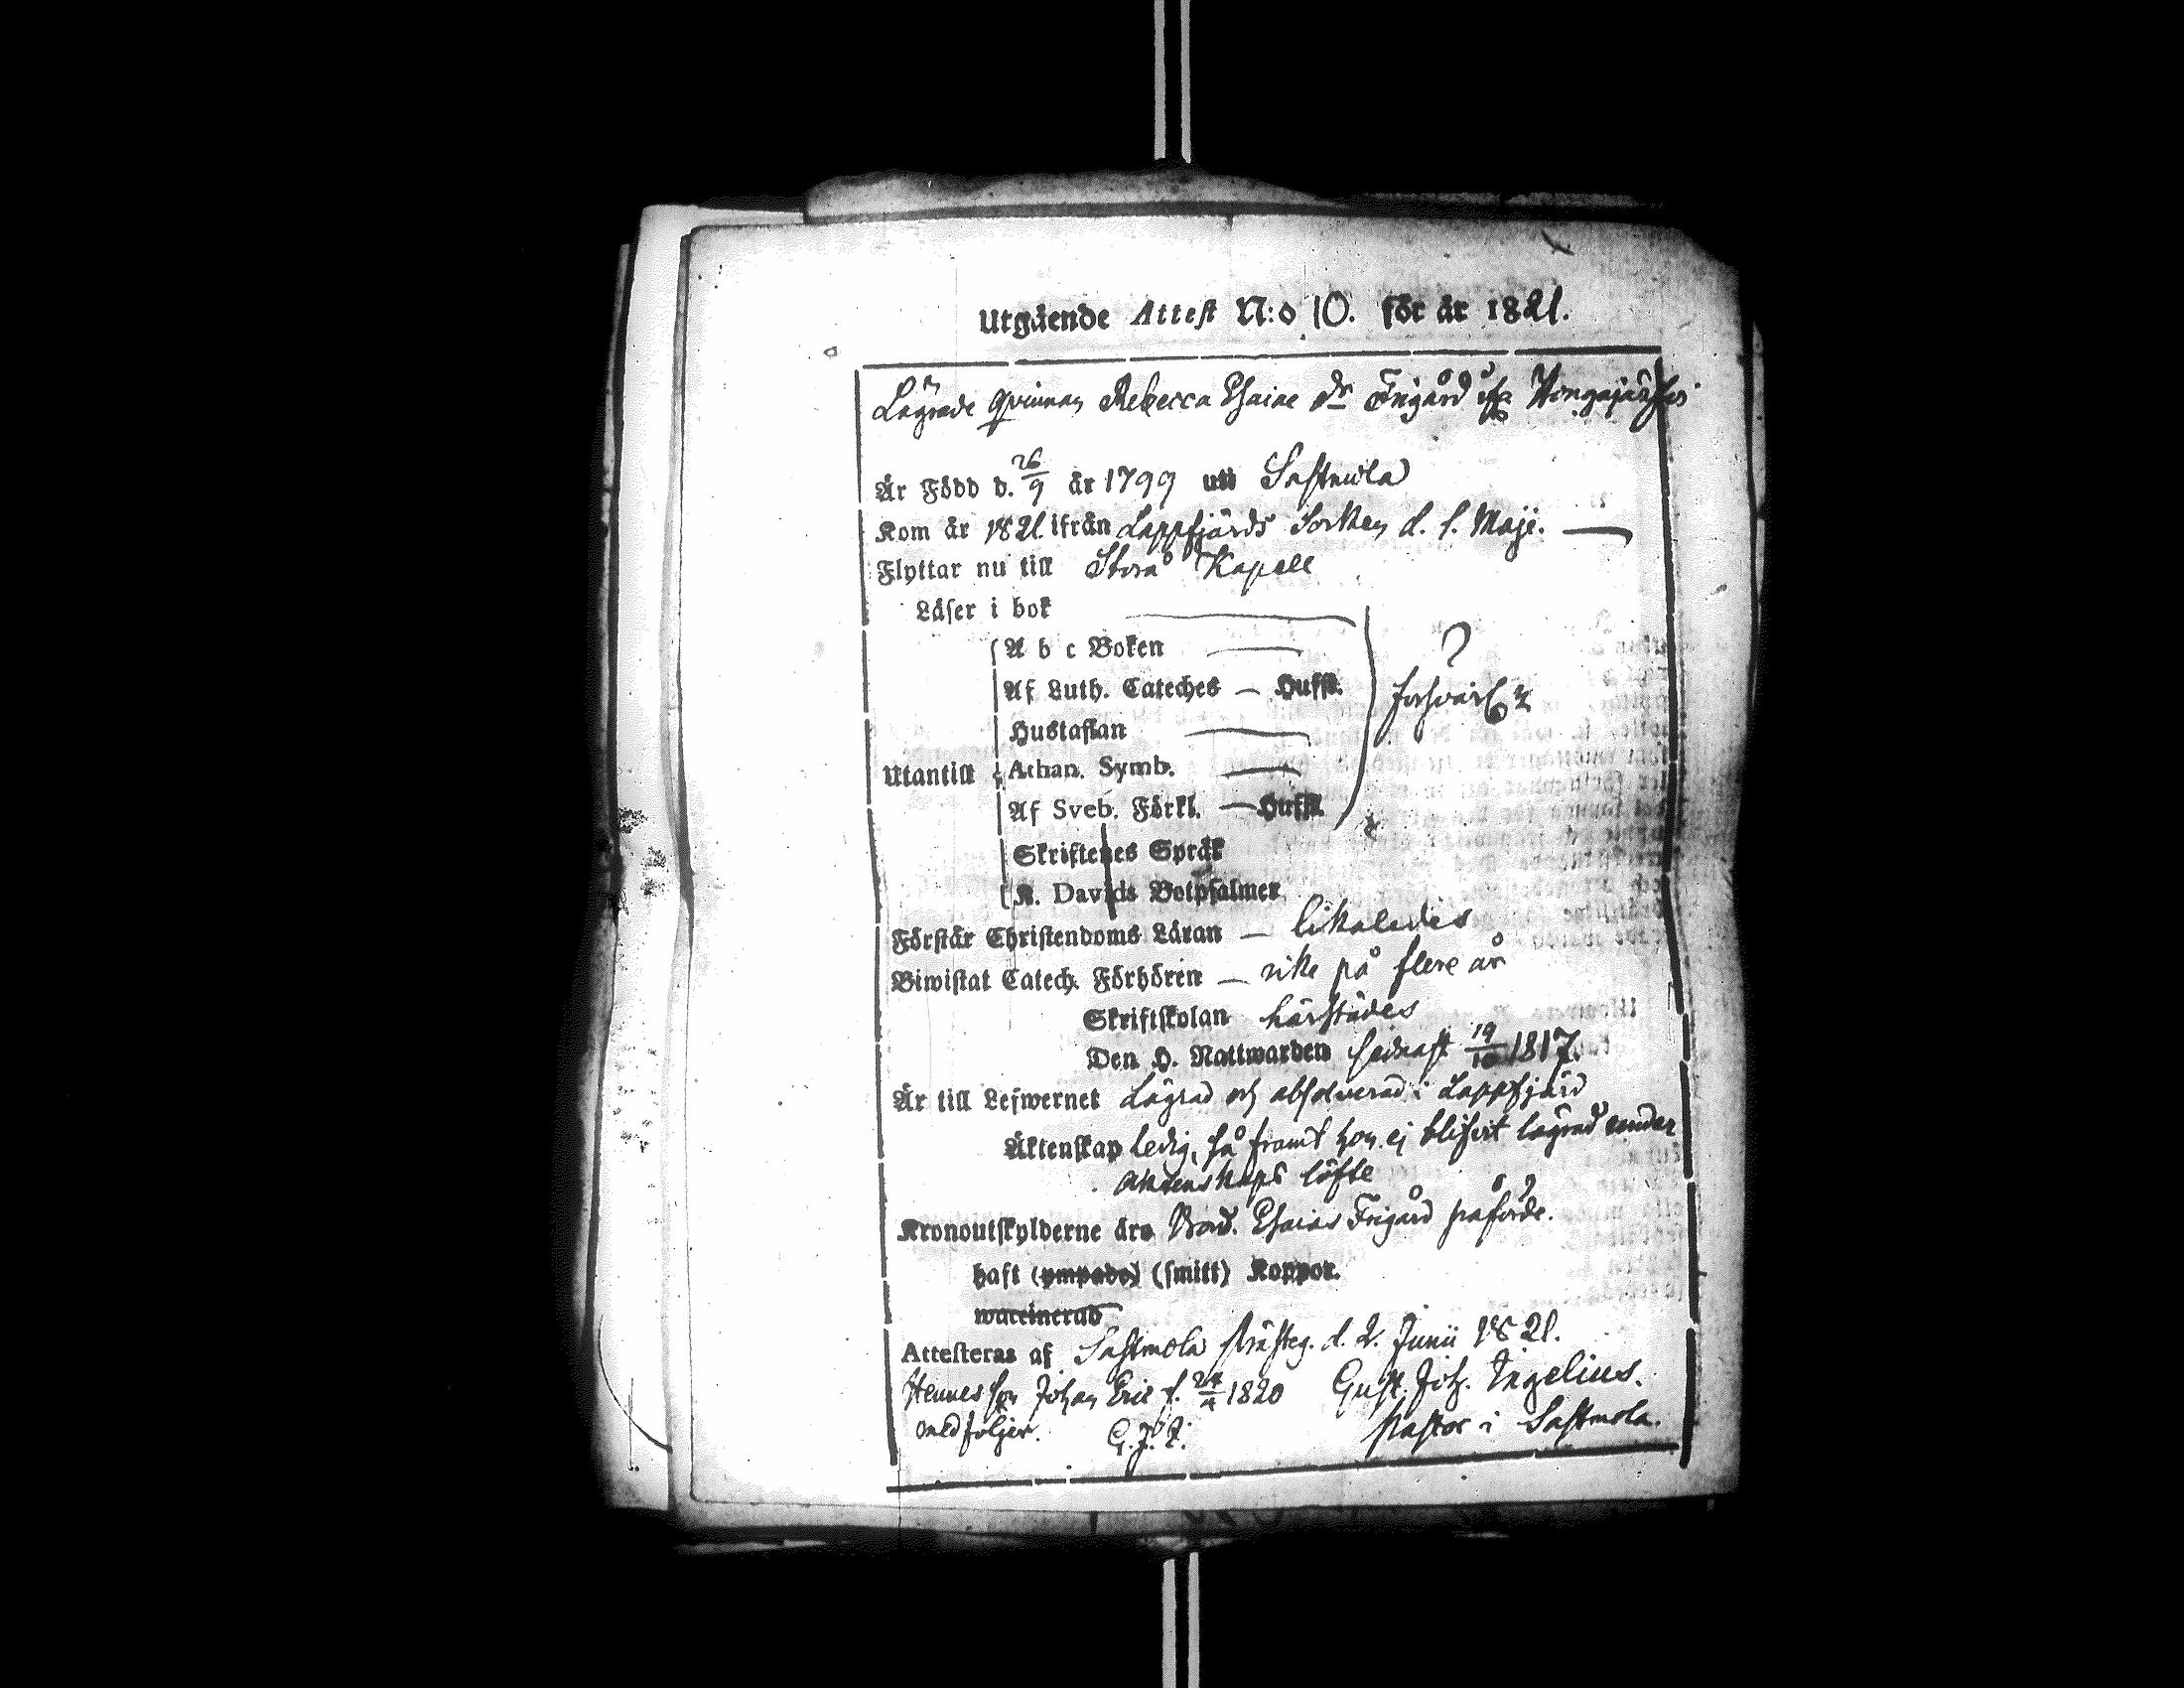 Utgående Attest N:o 10. för år 1821.
Lägrade Qvinnan Rebecca Esaiae dr Frigård ifr Hongajärfvi
Är Född d. 26/9 år 1799 uti Sastmola
Kom år 1821 ifrån Lappfjärds Sockn d. 1. Maji.
Flyttar nu till Storå Kapell
Läser i bok
A b c Boken
?
Af Luth. Cateches — Hufst.
försvarl.
Hustaflan
Utantill Athan. Symb.
Af Sveb. Förkl. — Hufst.
Skriftenes Språk
K. Davids Botpsalmer
Förstår Christendoms Läran — likaledes
Biwistat Catech. Förhören — icke på flere år
Skriftskolan härstädes
Den H. Nattwarden sednast 19/10 1817.
Är till Lefwernet Lägrad och absolverad i Lappfjärd
Äktenskap ledig, så framt hon ej blifvit lägrad under
äktenskaps löfte
Kronoutskylderne äro Bond. Esaias Frigård påförde.
haft (ympade) (smitt) Koppor.
waccinerad
Attesteras af Sastmola Prästeg. d. 2. Junii 1821.
Hennes son Johan Eric f. 24/4 1820 Gust. Joh. Ingelius.
medföljer. G. J. I. Pastor i Sastmola.